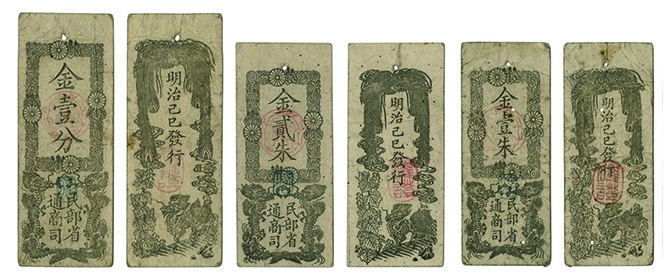 金壹分
民部省
通商司
明治己巳發行
金貳朱
民部省
通商司
明治己巳發行
金壹朱
民部省
通商司
明治己巳發行